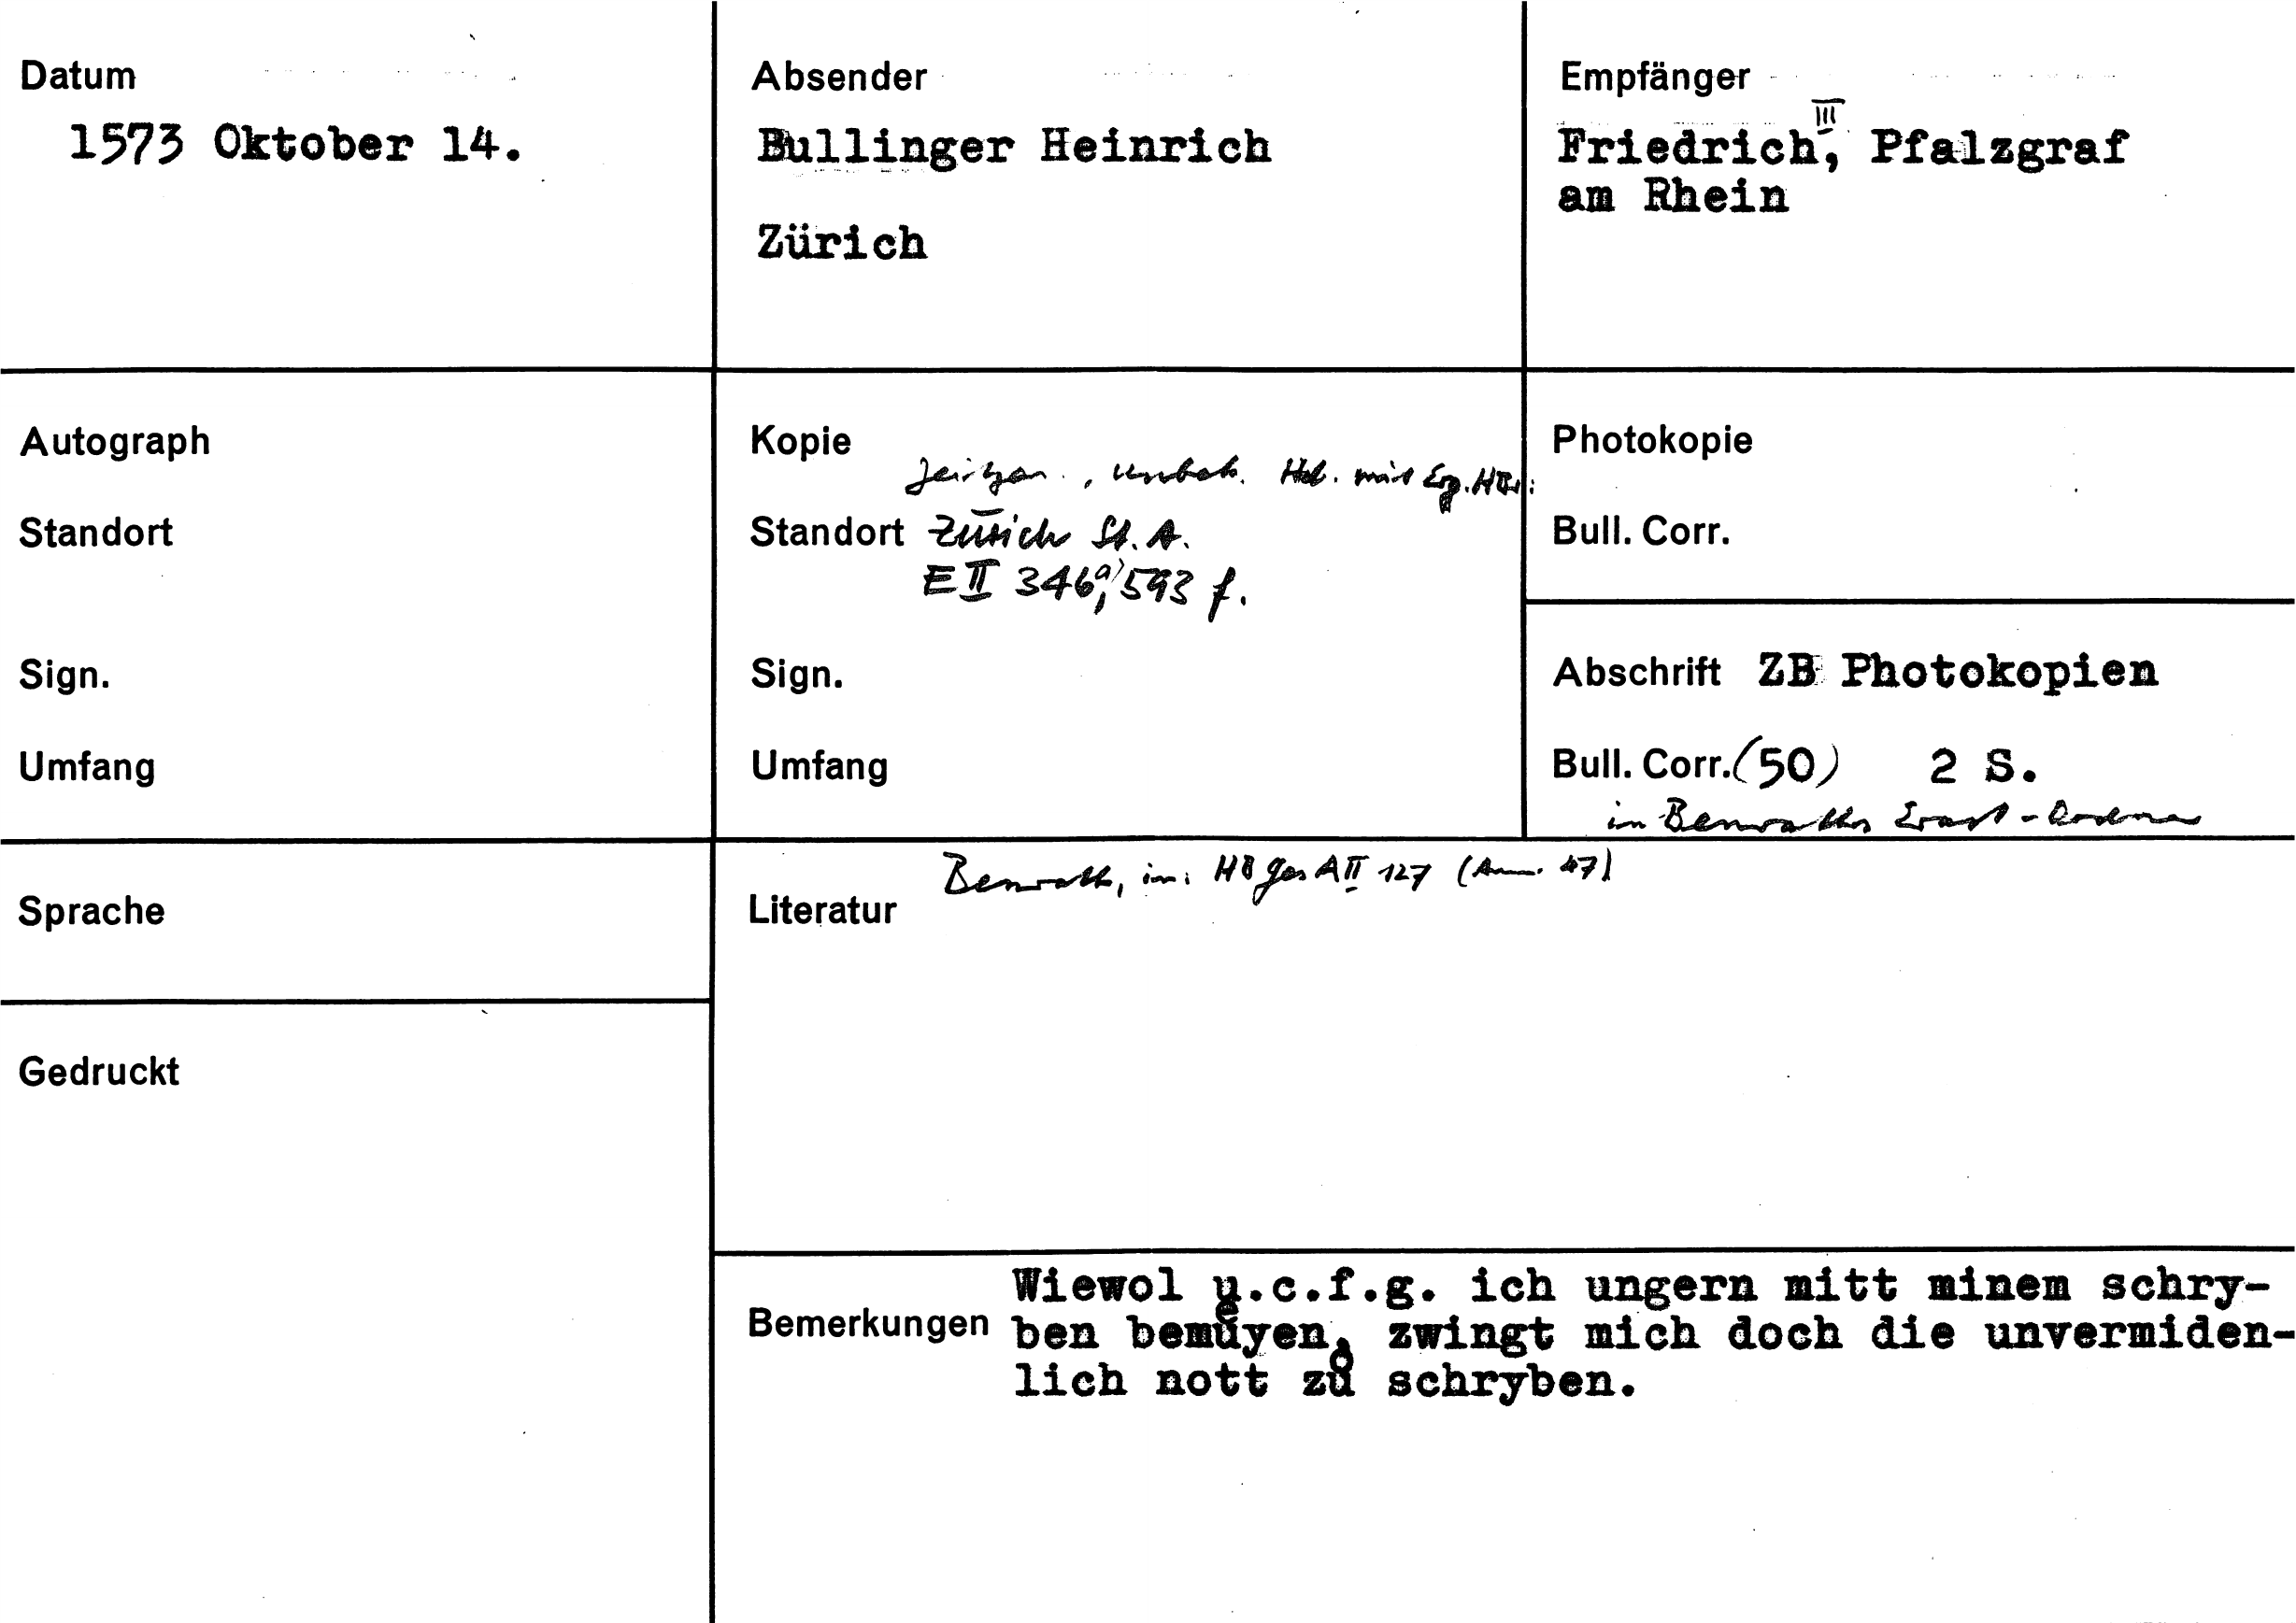 Datum
1573 Oktober 14.
Absender
Bullinger Heinrich
Zürich
Empfänger
III
Friedrich, Pfalzgraf
am Rhein
Autograph
Standort
Sign.
Umfang
Kopie
, unbek. Hd. mit Erg. HBs:
Standort Zürich St. A.
E II 346a, 593 f.
Sign.
Umfang
Photokopie
Bull. Corr.
Abschrift ZB Photokopien
Bull. Corr. (50) 2 S.
in Benraths Erast-
Sprache
Gedruckt
Benrath, in: HB GesA II 127 (Anm. 47)
Literatur
Bemerkungen
Wiewol u.c.f.g. ich ungern mitt minem schry-
ben bemuͤyen, zwingt mich doch die unvermiden-
lich nott zů schryben.